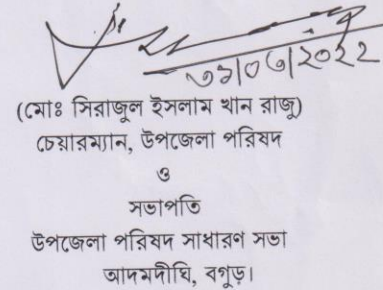 ৩১/০৩/২০২২
(মোঃ সিরাজুল ইসলাম খান রাজু)
চেয়ারম্যান, উপজেলা পরিষদ
ও
সভাপতি
উপজেলা পরিষদ সাধারণ সভা
আদমদীঘি, বগুড়া।